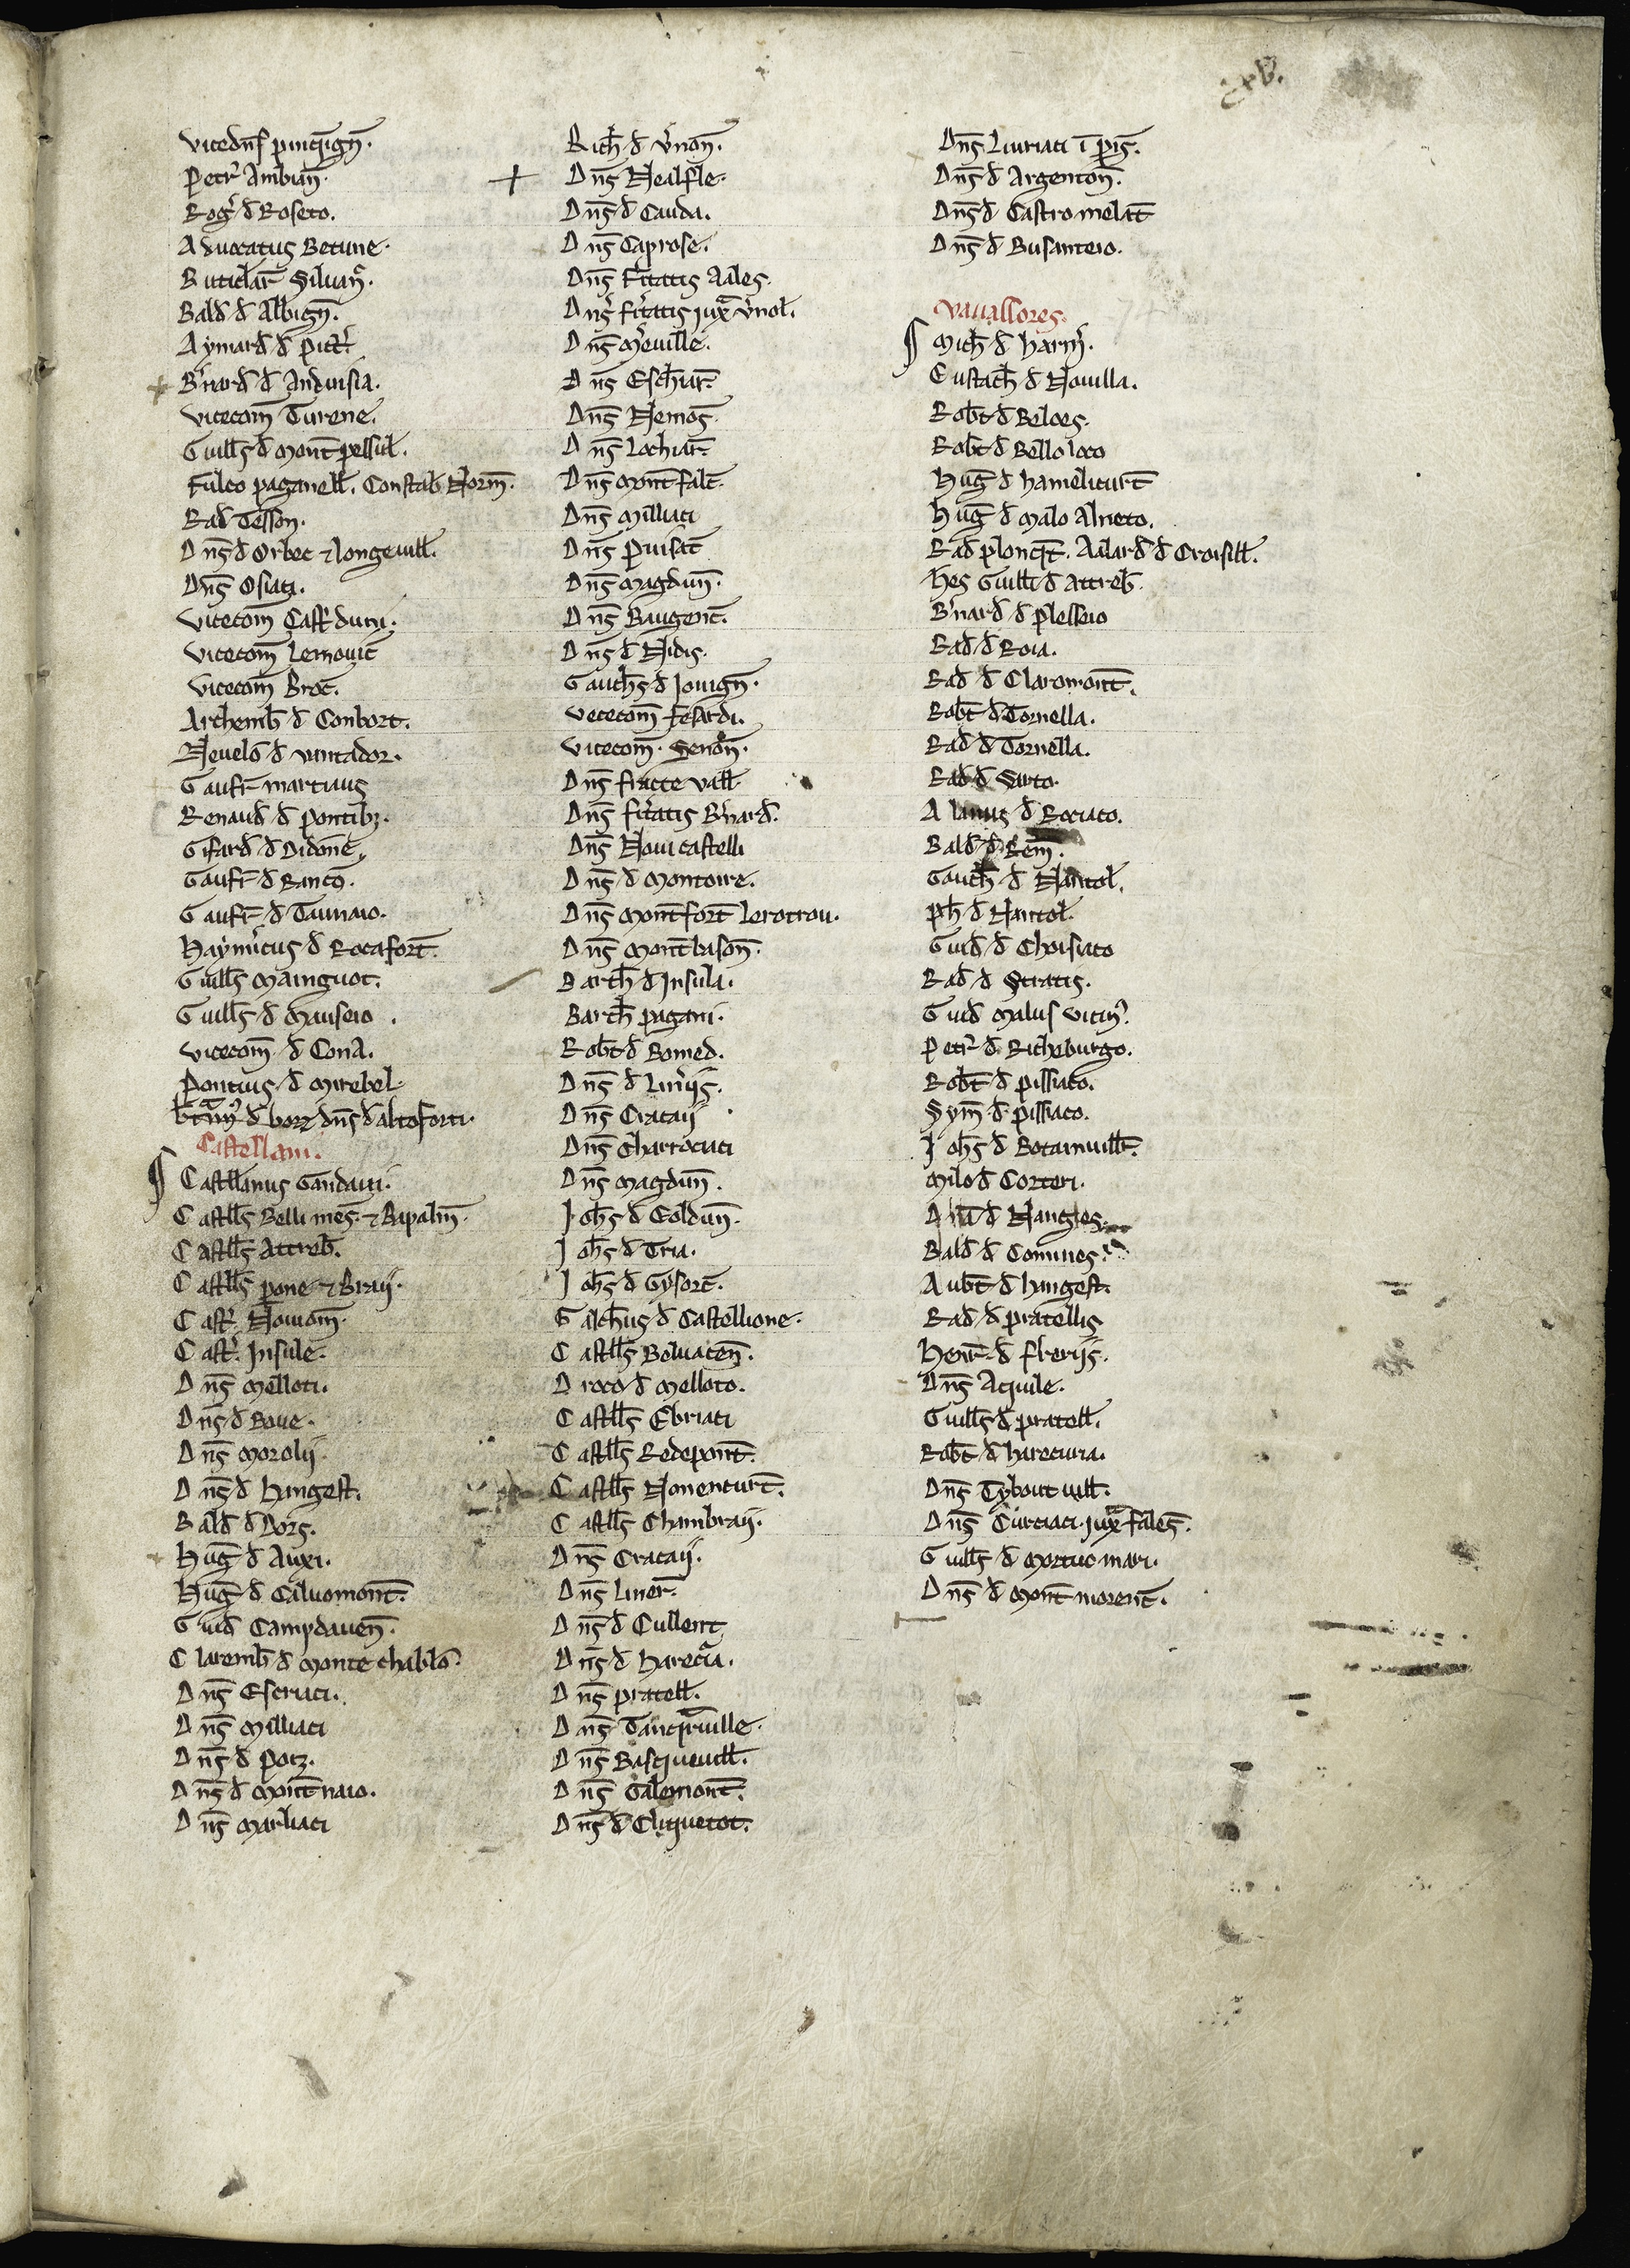 Vicedn̄s pinq̄ign̄.
Petr᷒ Ambian̄.
Rog᷒ đ Roseto.
Advocatus Betune.
Buticlar̄ Siluan̄.
Bald đ Albign̄.
Aymard đ pict᷒.
B᷒nard đ Andusia.
Vicecom̄ Turene.
Guill̄s đ mont̄ pessul.
Fulco paganell. Constab Norm̄.
Rad Tesson.
Dn̄s đ Orbec ⁊ longeuill.
Dn̄s Osiaci.
Vicecom̄ Cast᷒ duni.
Vicecom̄ Lemouic̄
Vicecom̄ Broc̄.
Archemb đ Conbort.
Neuelo đ vantador.
Gaufr̄ martiaus
Renaud đ pontibꝫ.
Gifard đ Didone.
Gaufr̄ đ Ranco.
Gaufr̄ đ Taunaio.
Haymicus đ Rocafort̄.
Guill̄s Mainguot.
Guill̄s đ Mauseio.
Vicecom̄ đ Cona.
Pontius đ mirebel.
đ borz dn̄s đ alto forti.
Castellani.
Castellanus Gandaui.
Castll̄s Belli mes̄. ⁊ Bapalm̄.
Castll̄s Attreb.
Castll̄s pone ⁊ Braij.
Cast᷒. Nouiom̄.
Cast᷒. Insule.
Dn̄s Melloti.
Dn̄s đ Boue.
Dn̄s Morolij.
Dn̄s đ hangest.
Bald đ Dors.
Huḡ đ Auxi.
Huḡ đ Caluomont̄.
Guid Campdauen̄.
Claremb đ monte chablo.
Dn̄s Escruci.
Dn̄s Milliaci
Dn̄s đ Poiz.
Dn̄s đ Mont̄naio.
Dn̄s Marliaci
Rich̄ đ v᷒non̄.
Dn̄s Nealfle.
Dn̄s đ Cauda.
Dn̄s Caprose.
Dn̄s F᷒itatis Aales.
Dn̄s f᷒itatis juxᵃ v᷒nol.
Dn̄s M᷒euille.
Dn̄s Esch᷒iar̄.
Dn̄s Nemos̄.
Dn̄s Lochiar̄.
Dn̄s Mont̄ falc̄.
Dn̄s Milliaci
Dn̄s Puisat̄
Dn̄s Magdun̄.
Dn̄s Baugenc̄.
Dn̄s đ Nidis.
Gauch̄s đ Jouign̄.
Vececom̄ fesardi.
Vicecom̄. Senon̄.
Dn̄s fracte vall.
Dn̄s f᷒itatis B᷒nard.
Dn̄s Noui castelli
Dn̄s đ Montoire.
Dn̄s Mont̄ fort̄ lerotrou.
Dn̄s Mont̄ bason̄.
Barth̄ đ Insula.
Barth̄ pagani.
Robt̄ đ Bomed.
Dn̄s đ Lin᷒ijs.
Dn̄s Cracaij
Dn̄s Charrociaci
Dn̄s Magdun̄.
Joh̄s đ Goldun̄.
Joh̄s đ Tria.
Joh̄s đ Gysorc̄.
Galch̄us đ Castellione.
Castll̄s Beluacen̄.
Droco đ Melloto.
Castll̄s Ebriaci
Castll̄s Redepont̄.
Castll̄s Nonencurt̄.
Castll̄s Chambraij.
Dn̄s Cracaij.
Dn̄s Liner̄.
Dn̄s đ Cullent
Dn̄s đ Harecᵃia.
Dn̄s pratell.
Dn̄s Tancqᵃruille.
Dn̄s Basqueuill.
Dn̄s Galemont̄.
Dn̄s đ Cliquetot.
Dn̄s Liuriaci ī pis̄.
Dn̄s đ Argenton̄.
Dn̄s đ Castro melat̄
Dn̄s đ Busanteio.
Vauassores.
Mich̄ đ harm̄.
Eustach̄ đ Nouilla.
Robt̄ đ Beloes.
Robt̄ đ Belloloco
Huḡ đ hamelicurt̄
Huḡ đ malo Alneto.
Rad plonq̄t. Aalard đ Croisill.
Hes Guill̄i đ Attreb.
B᷒nard đ plesseio
Rad đ Roia.
Rad đ Claromont̄.
Robt̄ đ Tornella.
Rad đ Tornella.
Rad đ Sarto.
Alanus đ Rociaco.
Bald đ Rem̄.
Gauch̄ đ Nantol.
Ph̄ đ Nantol.
Guid đ Choisiaco
Rad đ Stratis.
Guid Malus vicin᷒.
Petr᷒ đ Richeburgo.
Robt̄ đ pissiaco.
Sym̄ đ pissiaco.
Joh̄s đ Botarnuill̄.
Milo đ Corteri.
Dn̄a đ Nangies.
Bald đ Comines.
Aubt̄ đ hangest.
Rad đ pratellis
Henr̄ đ f᷒r᷒ijs.
Dn̄s Aquile.
Guill̄s đ pratell.
Robt̄ đ harecuria.
Dn̄s Tybout uill.
Dn̄s Curciaci juxᵃ fales̄.
Guill̄s đ Mortuo mari.
Dn̄s đ Mont̄ morenc̄.